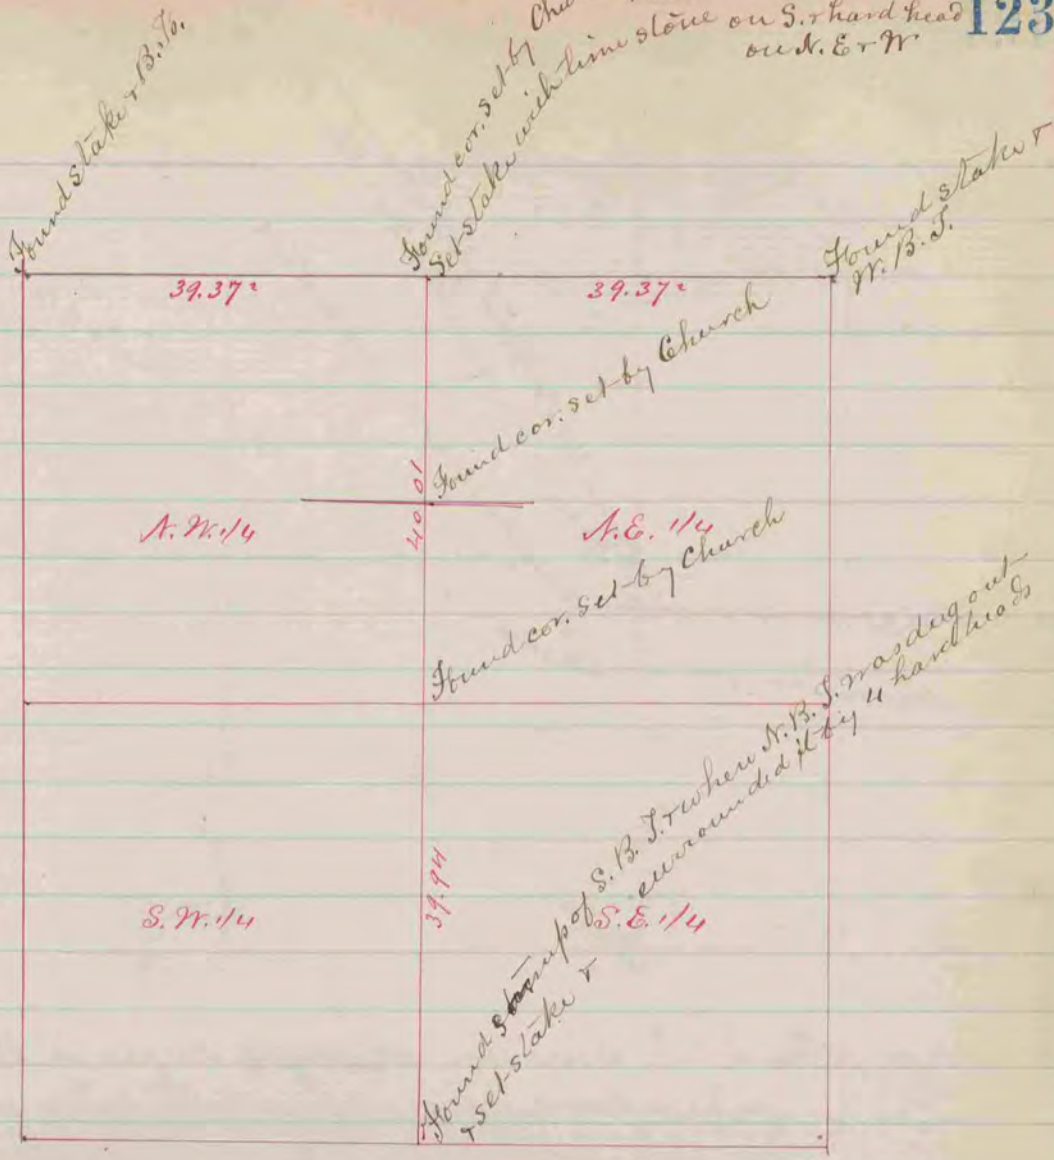 123
Found stake & B.Ts.
Found cor. set by
Set stake with lime stone on S. & hard head
on N. E & W
Found stake &
W. B. T.
39.37²
39.37²
Found cor. set by Church
40.01
N.W. 1/4
N.E. 1/4
Found cor. set by Church
39.94
S.W. 1/4
S.E. 1/4
Found stump of S. B. T. & where N. B. T. was dug out
& set stake & surrounded it by 4 hard heads